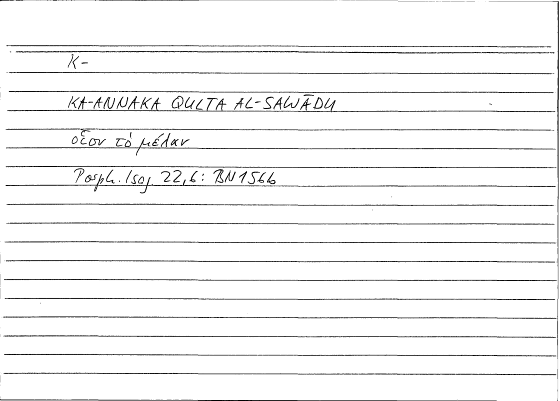 K-
KA-ANNAKA QULTA AL-SAWĀDU
οἷον τὸ μέλαν
Porph. Isag. 22,6: BN1566